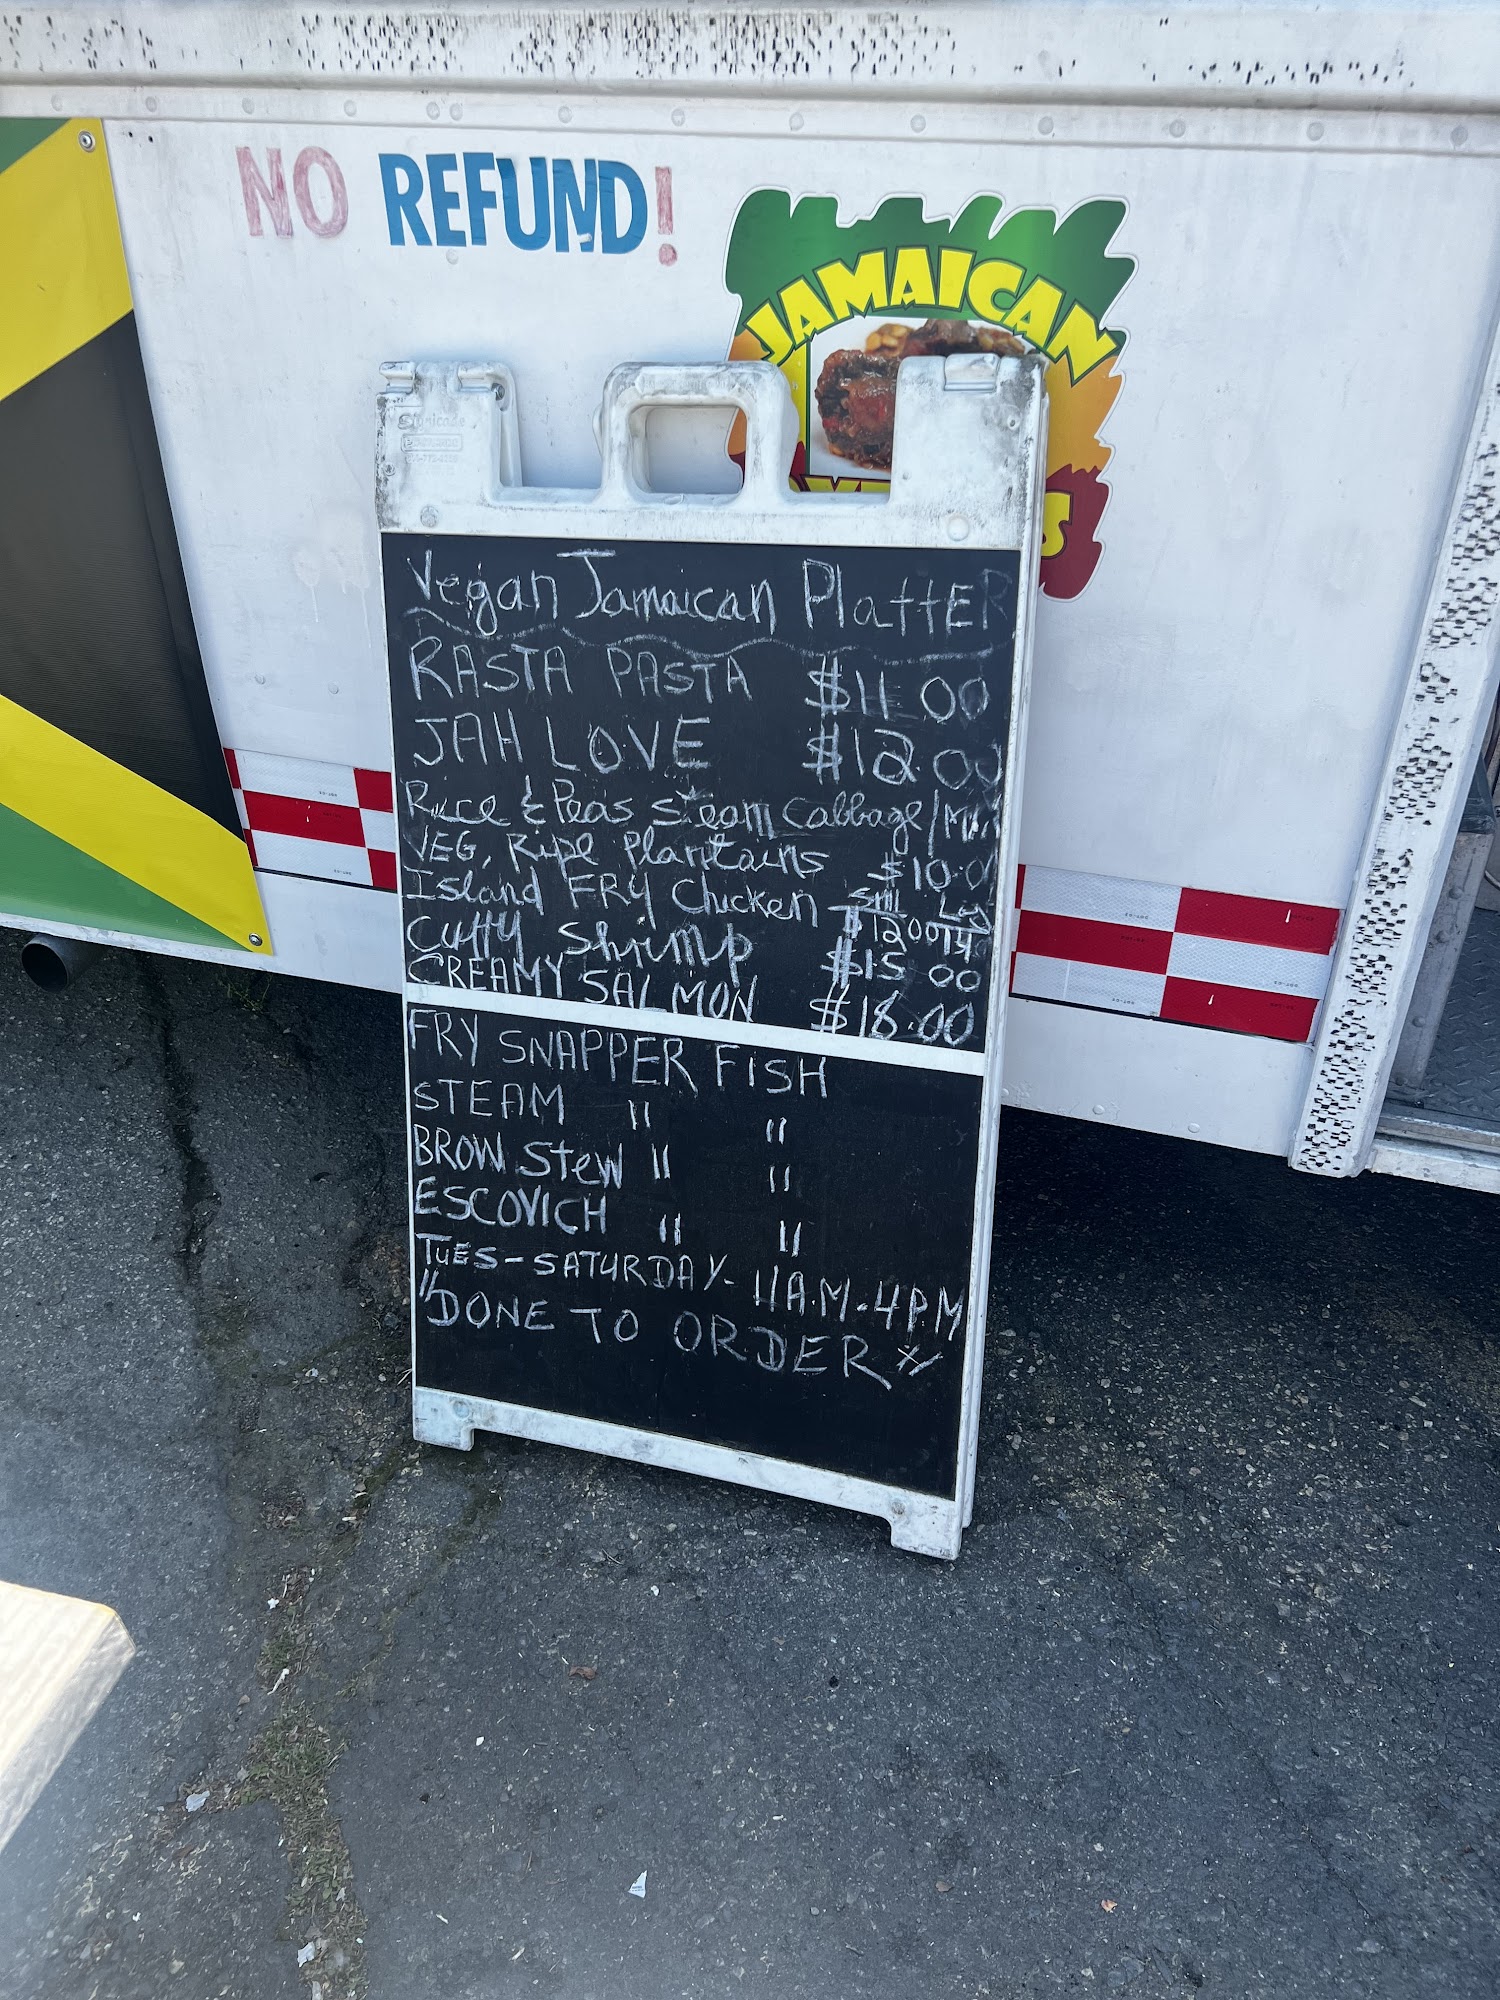 NO REFUND!
JAMAICAN
Signicade
Vegan Jamaican PlattER
RASTA PASTA $11 00
JAH LOVE $12.00
Rice & Peas steam cabbage/
VEG, Ripe Plantains $10.0
Island FRY Chicken Sml Lg
$1200
Curry Shrimp $15 00
CREAMY SALMON $18.00
FRY SNAPPER FISH
STEAM " "
BROW Stew " "
ESCOVICH " "
TUES-SATURDAY- 11A.M-4P.M
"DONE TO ORDER"